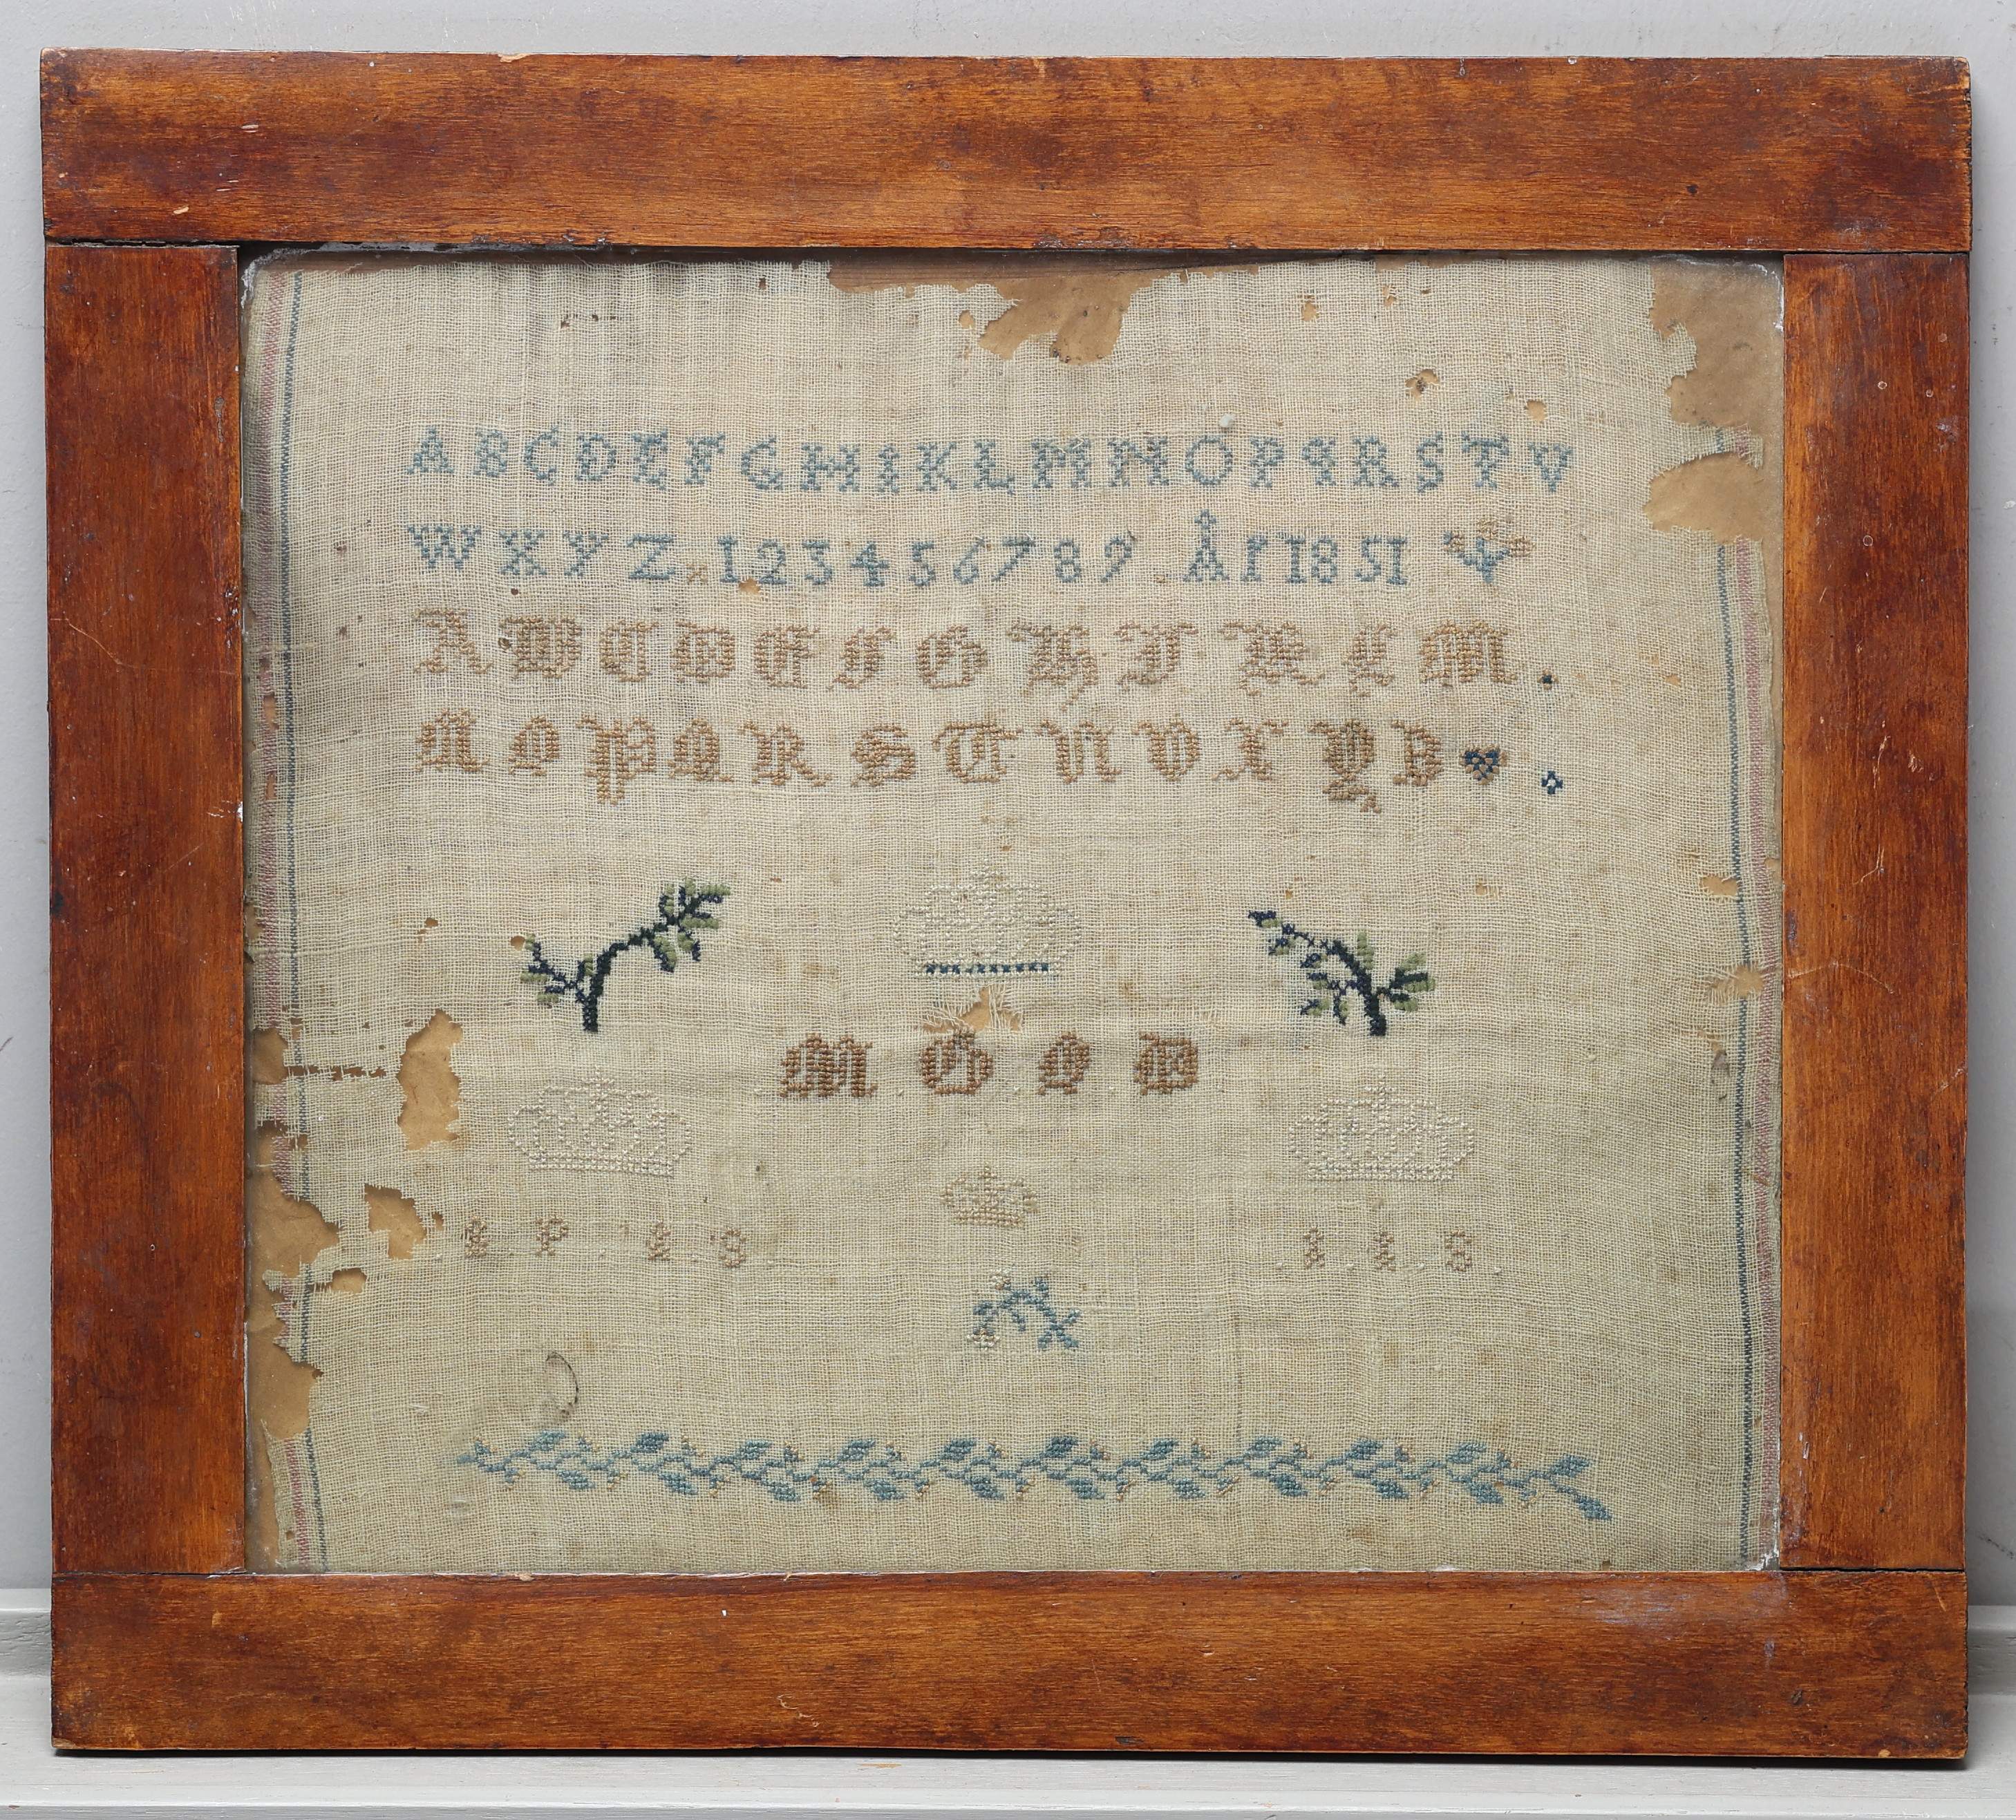 ABCDEFGHIKLMNOPQRSTV
WXYZ 123456789 År 1851
ABCDEFGHIKLM.
NOPQRSTUVXYZ
M . G . O . D
.I.P.I.S. .I.I.S.